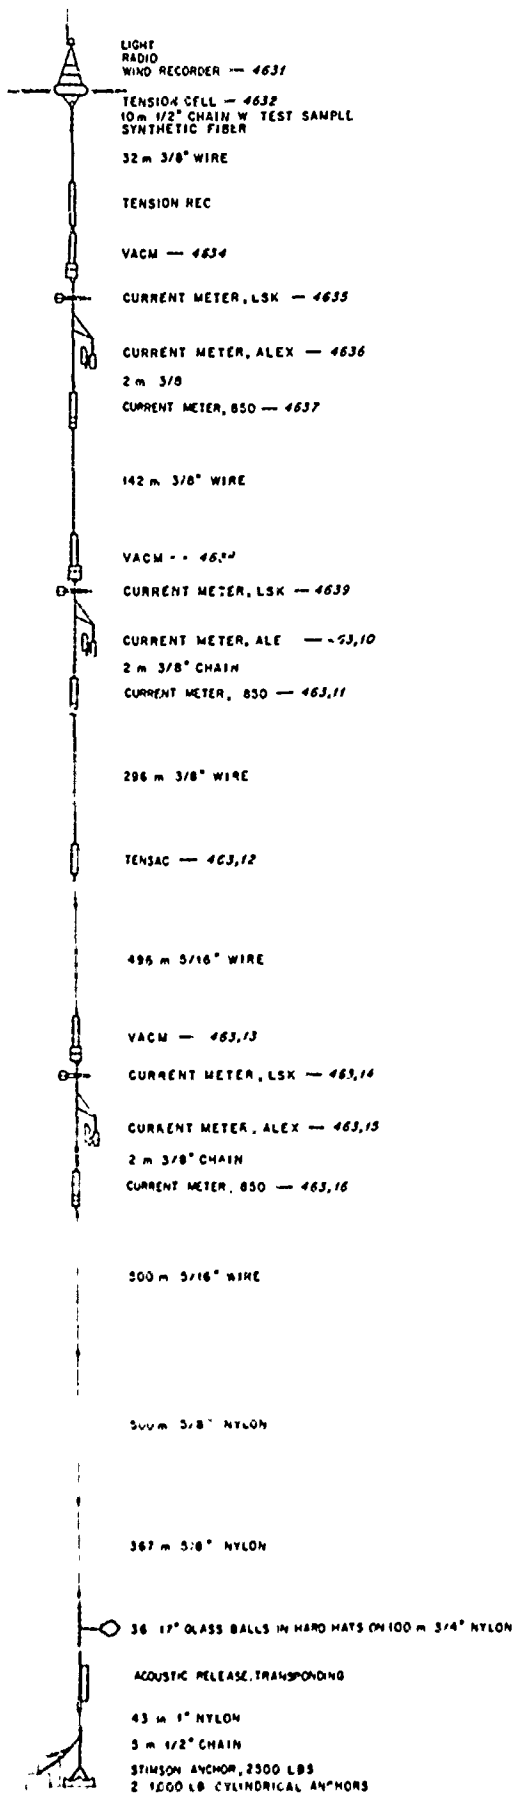 LIGHT
RADIO
WIND RECORDER — 4631
TENSION CELL — 4632
10m 1/2" CHAIN W TEST SAMPLE
SYNTHETIC FIBER
32 m 3/8" WIRE
TENSION REC
VACM — 4634
CURRENT METER, LSK — 4635
CURRENT METER, ALEX — 4636
2 m 3/8
CURRENT METER, 850 — 4637
142 m 3/8" WIRE
VACM --
CURRENT METER, LSK — 4639
CURRENT METER, ALE — 63,10
2 m 3/8" CHAIN
CURRENT METER, 850 — 463,11
296 m 3/8" WIRE
TENSAC — 463,12
496 m 5/16" WIRE
VACM — 463,13
CURRENT METER, LSK — 463,14
CURRENT METER, ALEX — 463,15
2 m 3/8" CHAIN
CURRENT METER, 850 — 463,16
500 m 5/16" WIRE
500 m 5/8" NYLON
367 m 5/8" NYLON
36 17" GLASS BALLS IN HARD HATS ON 100 m 3/4" NYLON
ACOUSTIC RELEASE, TRANSPONDING
43 m 1" NYLON
5 m 1/2" CHAIN
STIMSON ANCHOR, 2500 LBS
2 1000 LB CYLINDRICAL ANCHORS